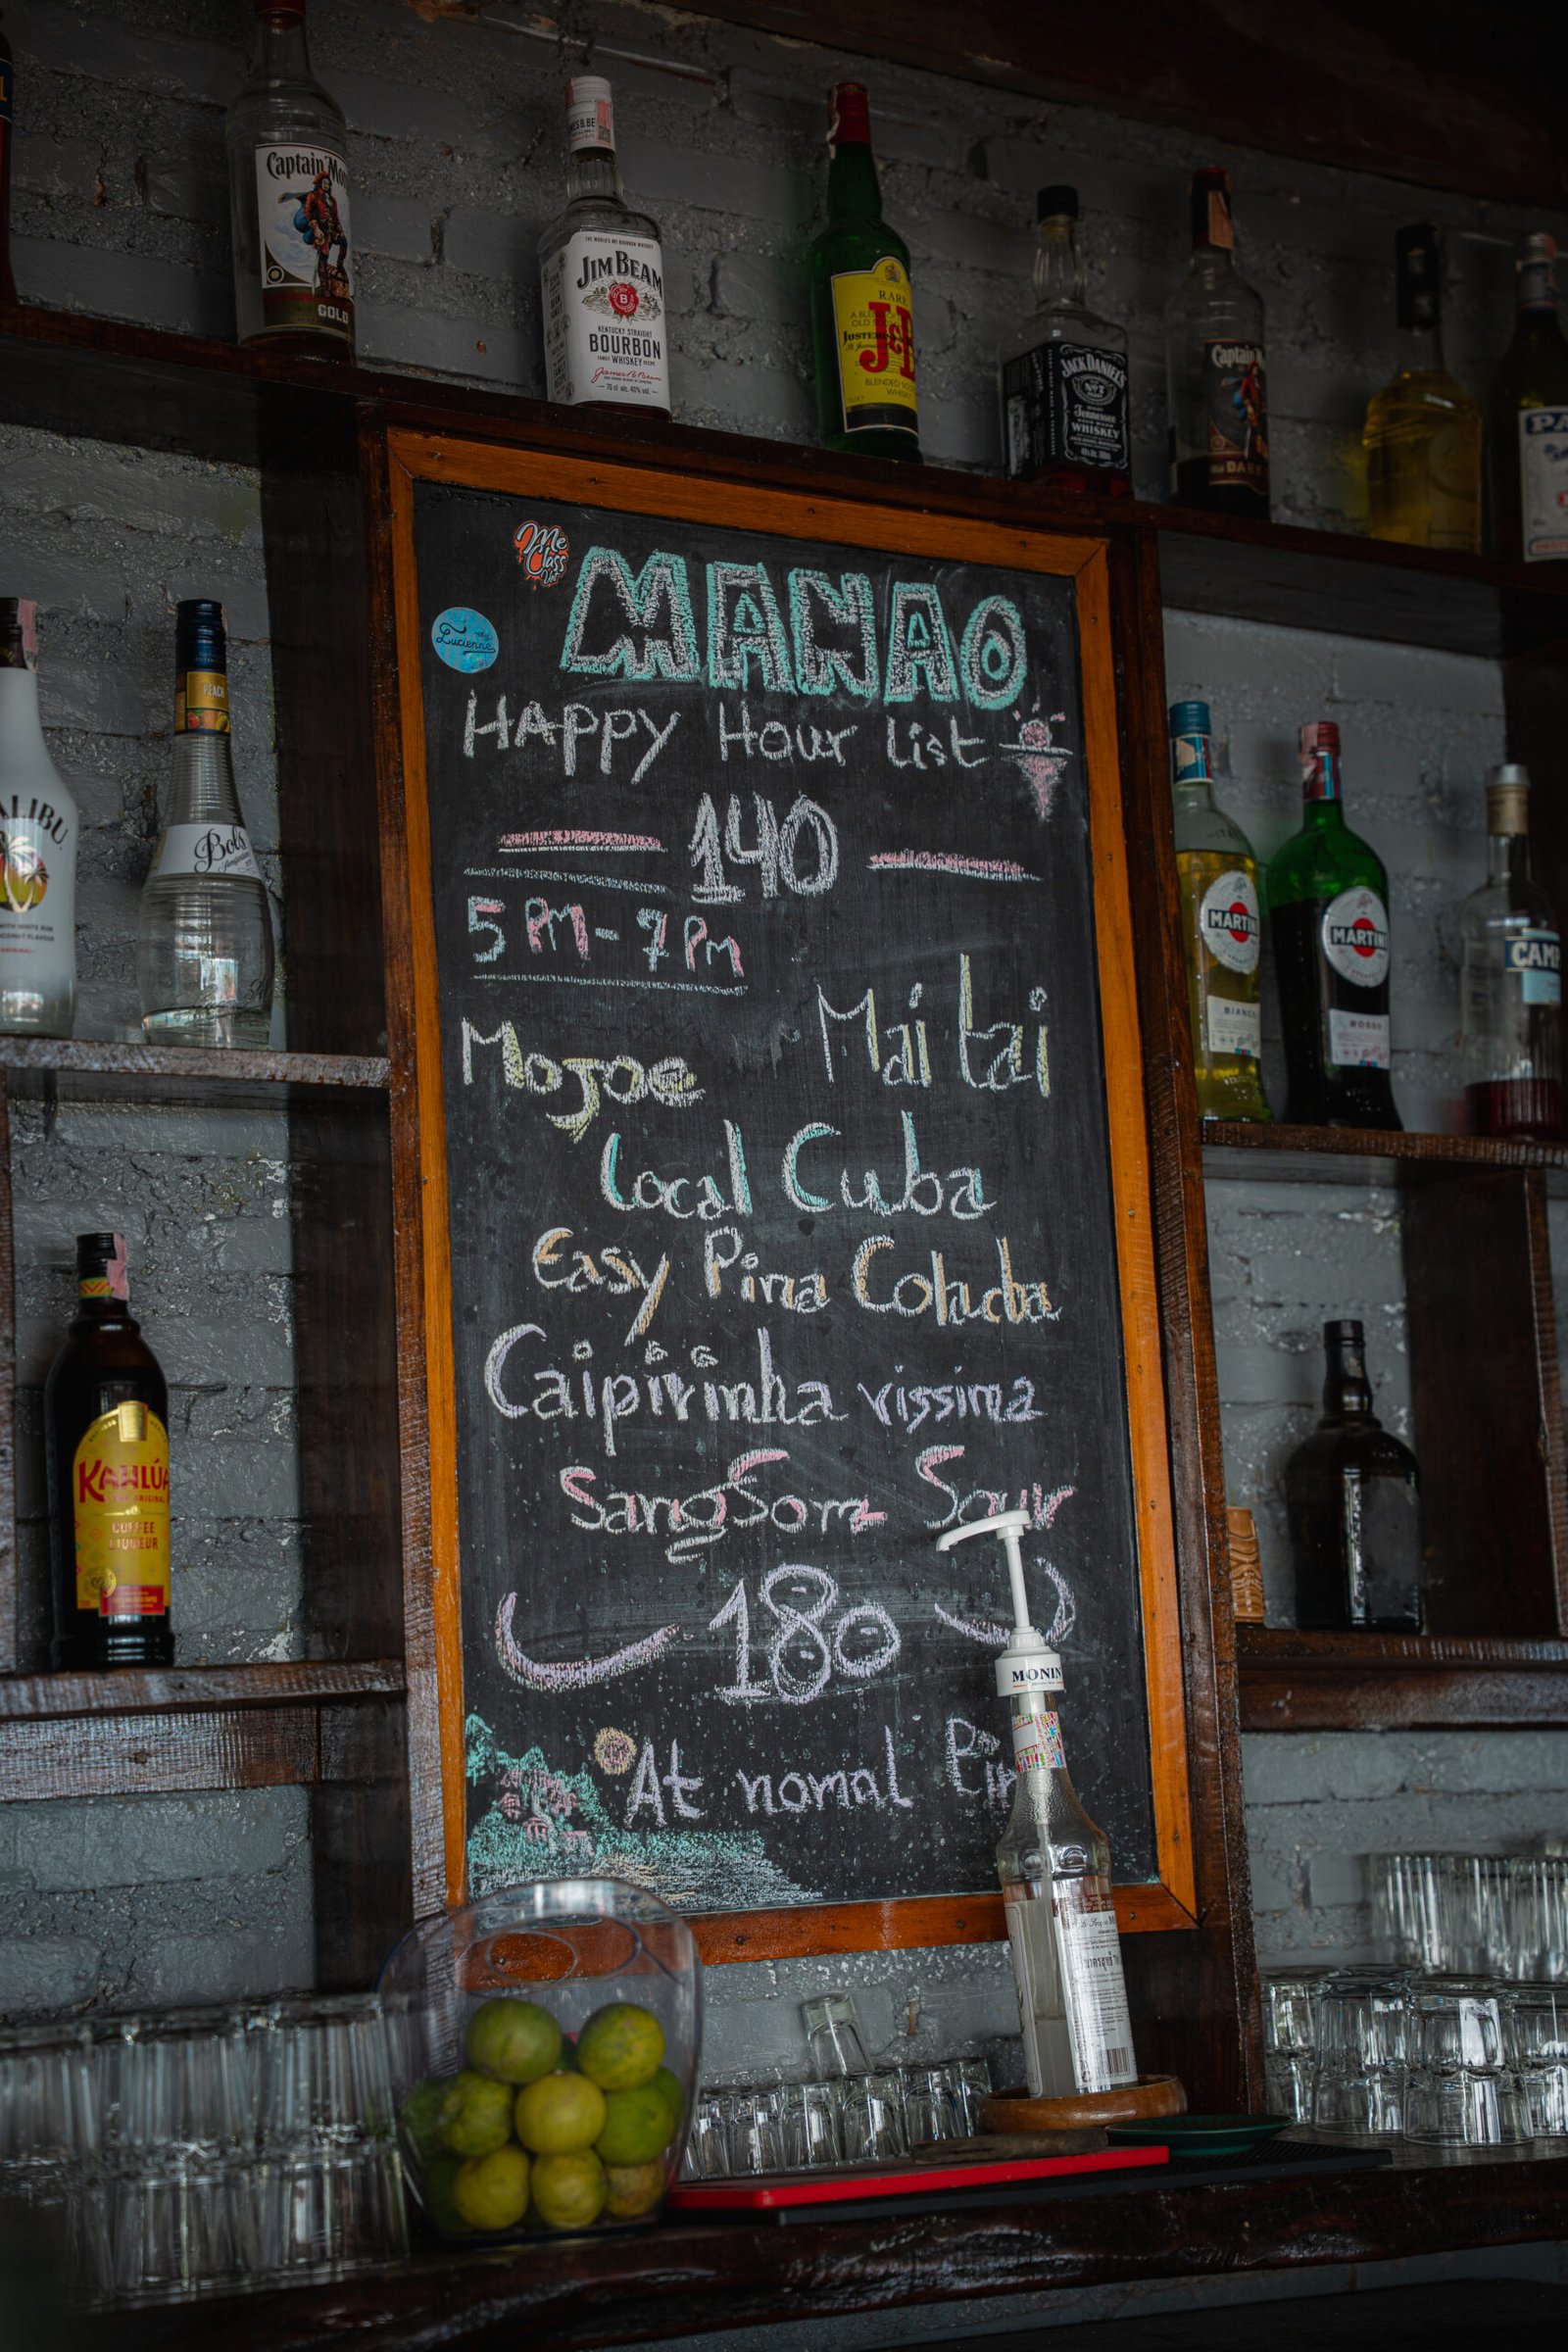 Captain
GOLD
JIM BEAM
KENTUCKY STRAIGHT
BOURBON
WHISKEY
RARE
J&B
BLENDED
JACK DANIEL'S
Tennessee
WHISKEY
Captain
DARK
Me
Class
Lucienne
MANAO
HAPPY Hour List
140
5 PM - 7 PM
Mojoe Mai tai
Local Cuba
Easy Pina Colada
Caipirinha vissima
SangSom Sour
180
At nomal
PEACH
Bols
ALIBU
KAHLÚA
COFFEE
LIQUEUR
MARTINI
BIANCO
MARTINI
ROSSO
CAMP
MONIN